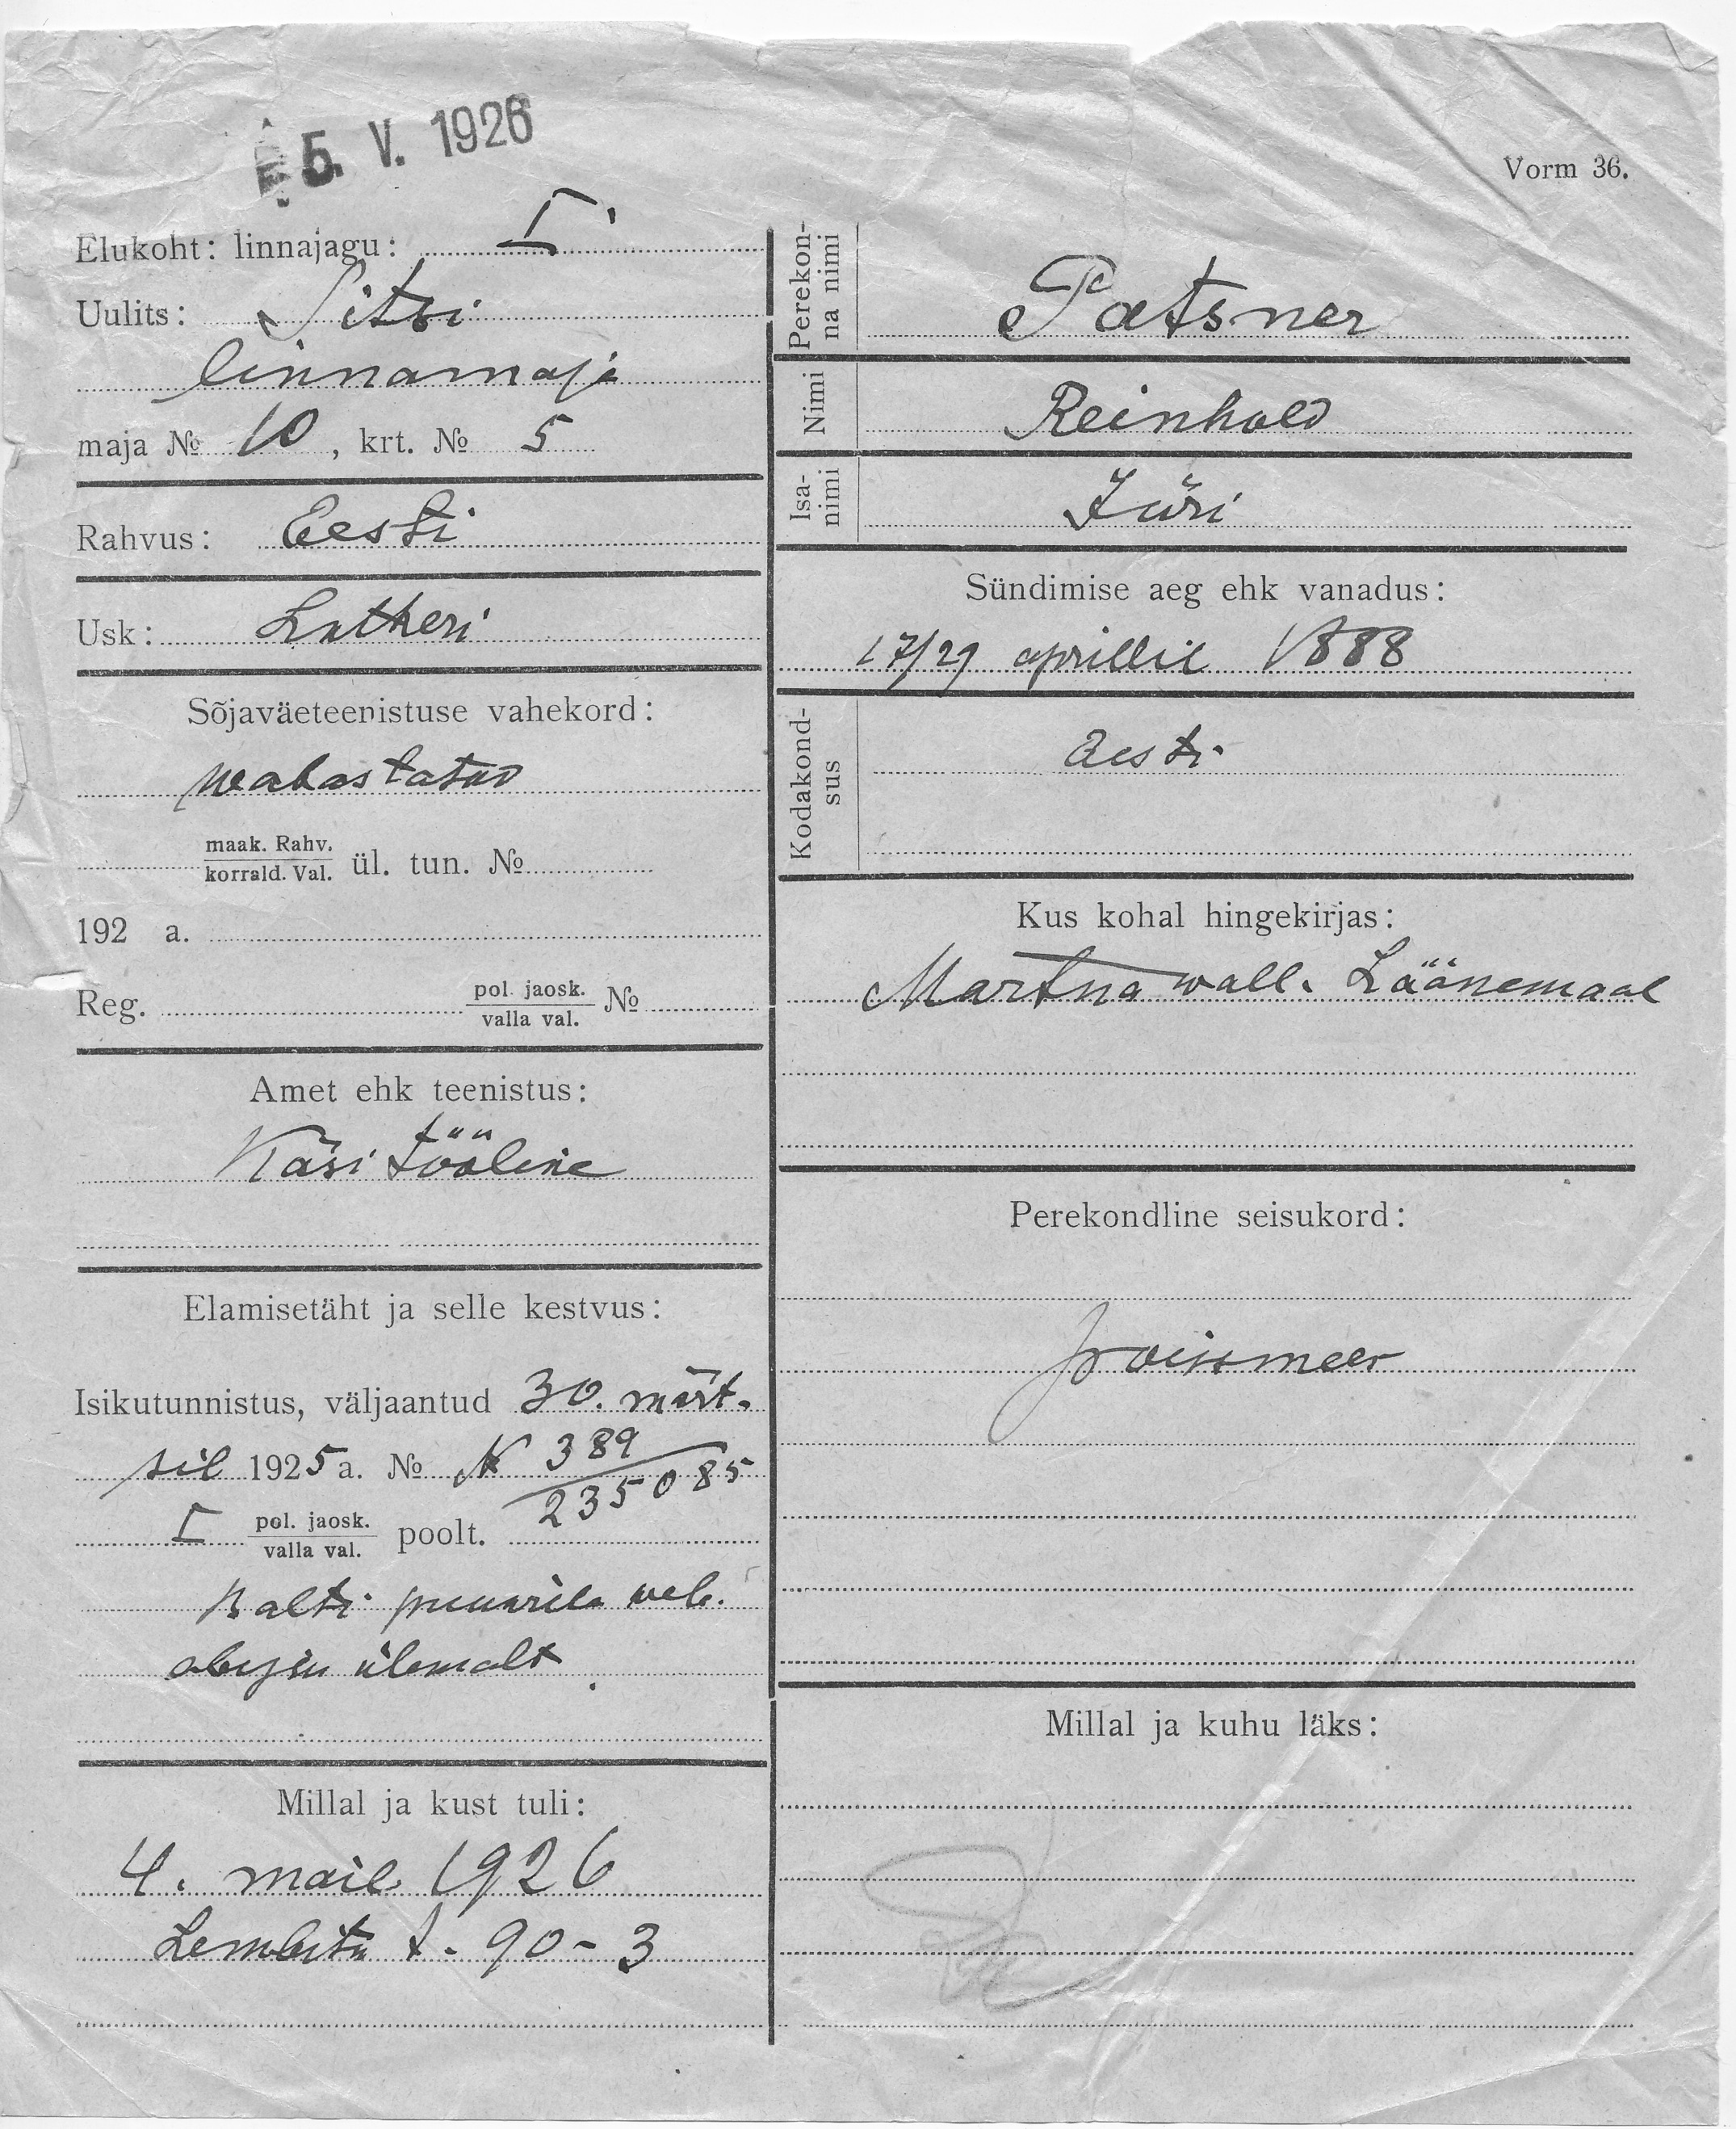 5. V. 1926
Vorm 36.
Elukoht: linnajagu: I
Uulits: Sitsi
linnamaja
maja № 10, krt. № 5
Rahvus: Eesti
Usk: Lutheri
Sõjaväeteenistuse vahekord:
wabastatud
maak. Rahv.
korrald. Val. ül. tun. №
192 a.
Reg. pol. jaosk.
valla val. №
Amet ehk teenistus:
Käsitööline
Elamisetäht ja selle kestvus:
Isikutunnistus, väljaantud 30. märt-
sil 1925 a. № N 389
235085
I pol. jaosk.
valla val. poolt.
Balti puuvila
ülemalt
Millal ja kust tuli:
4. mail 1926
Lembitu t. 90-3
Perekon-
na nimi
Patsner
Nimi
Reinhold
Isa-
nimi
Jüri
Sündimise aeg ehk vanadus:
17/29 aprillil 1888
Kodakond-
sus
Eesti
Kus kohal hingekirjas:
Martna wall. Läänemaal
Perekondline seisukord:
poissmees
Millal ja kuhu läks: